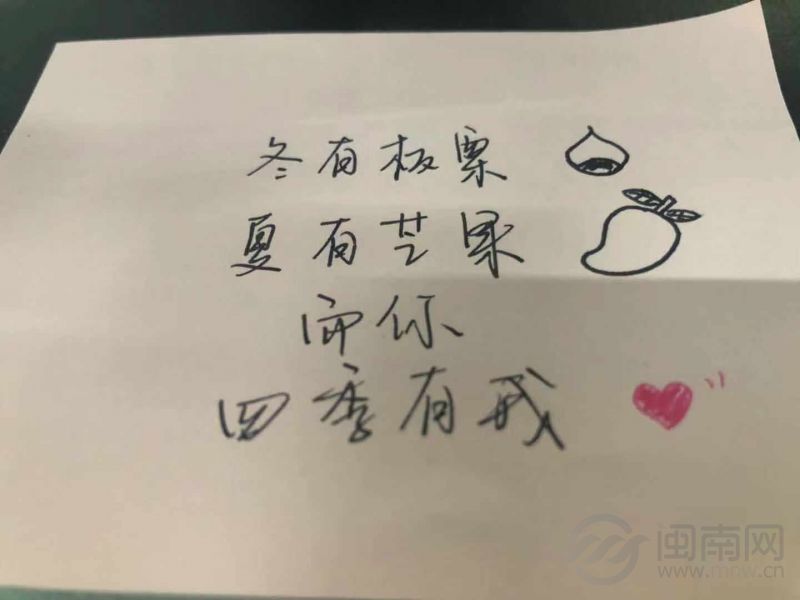 冬有板栗
夏有芒果
而你
四季有我
闽南网
www.mnw.cn